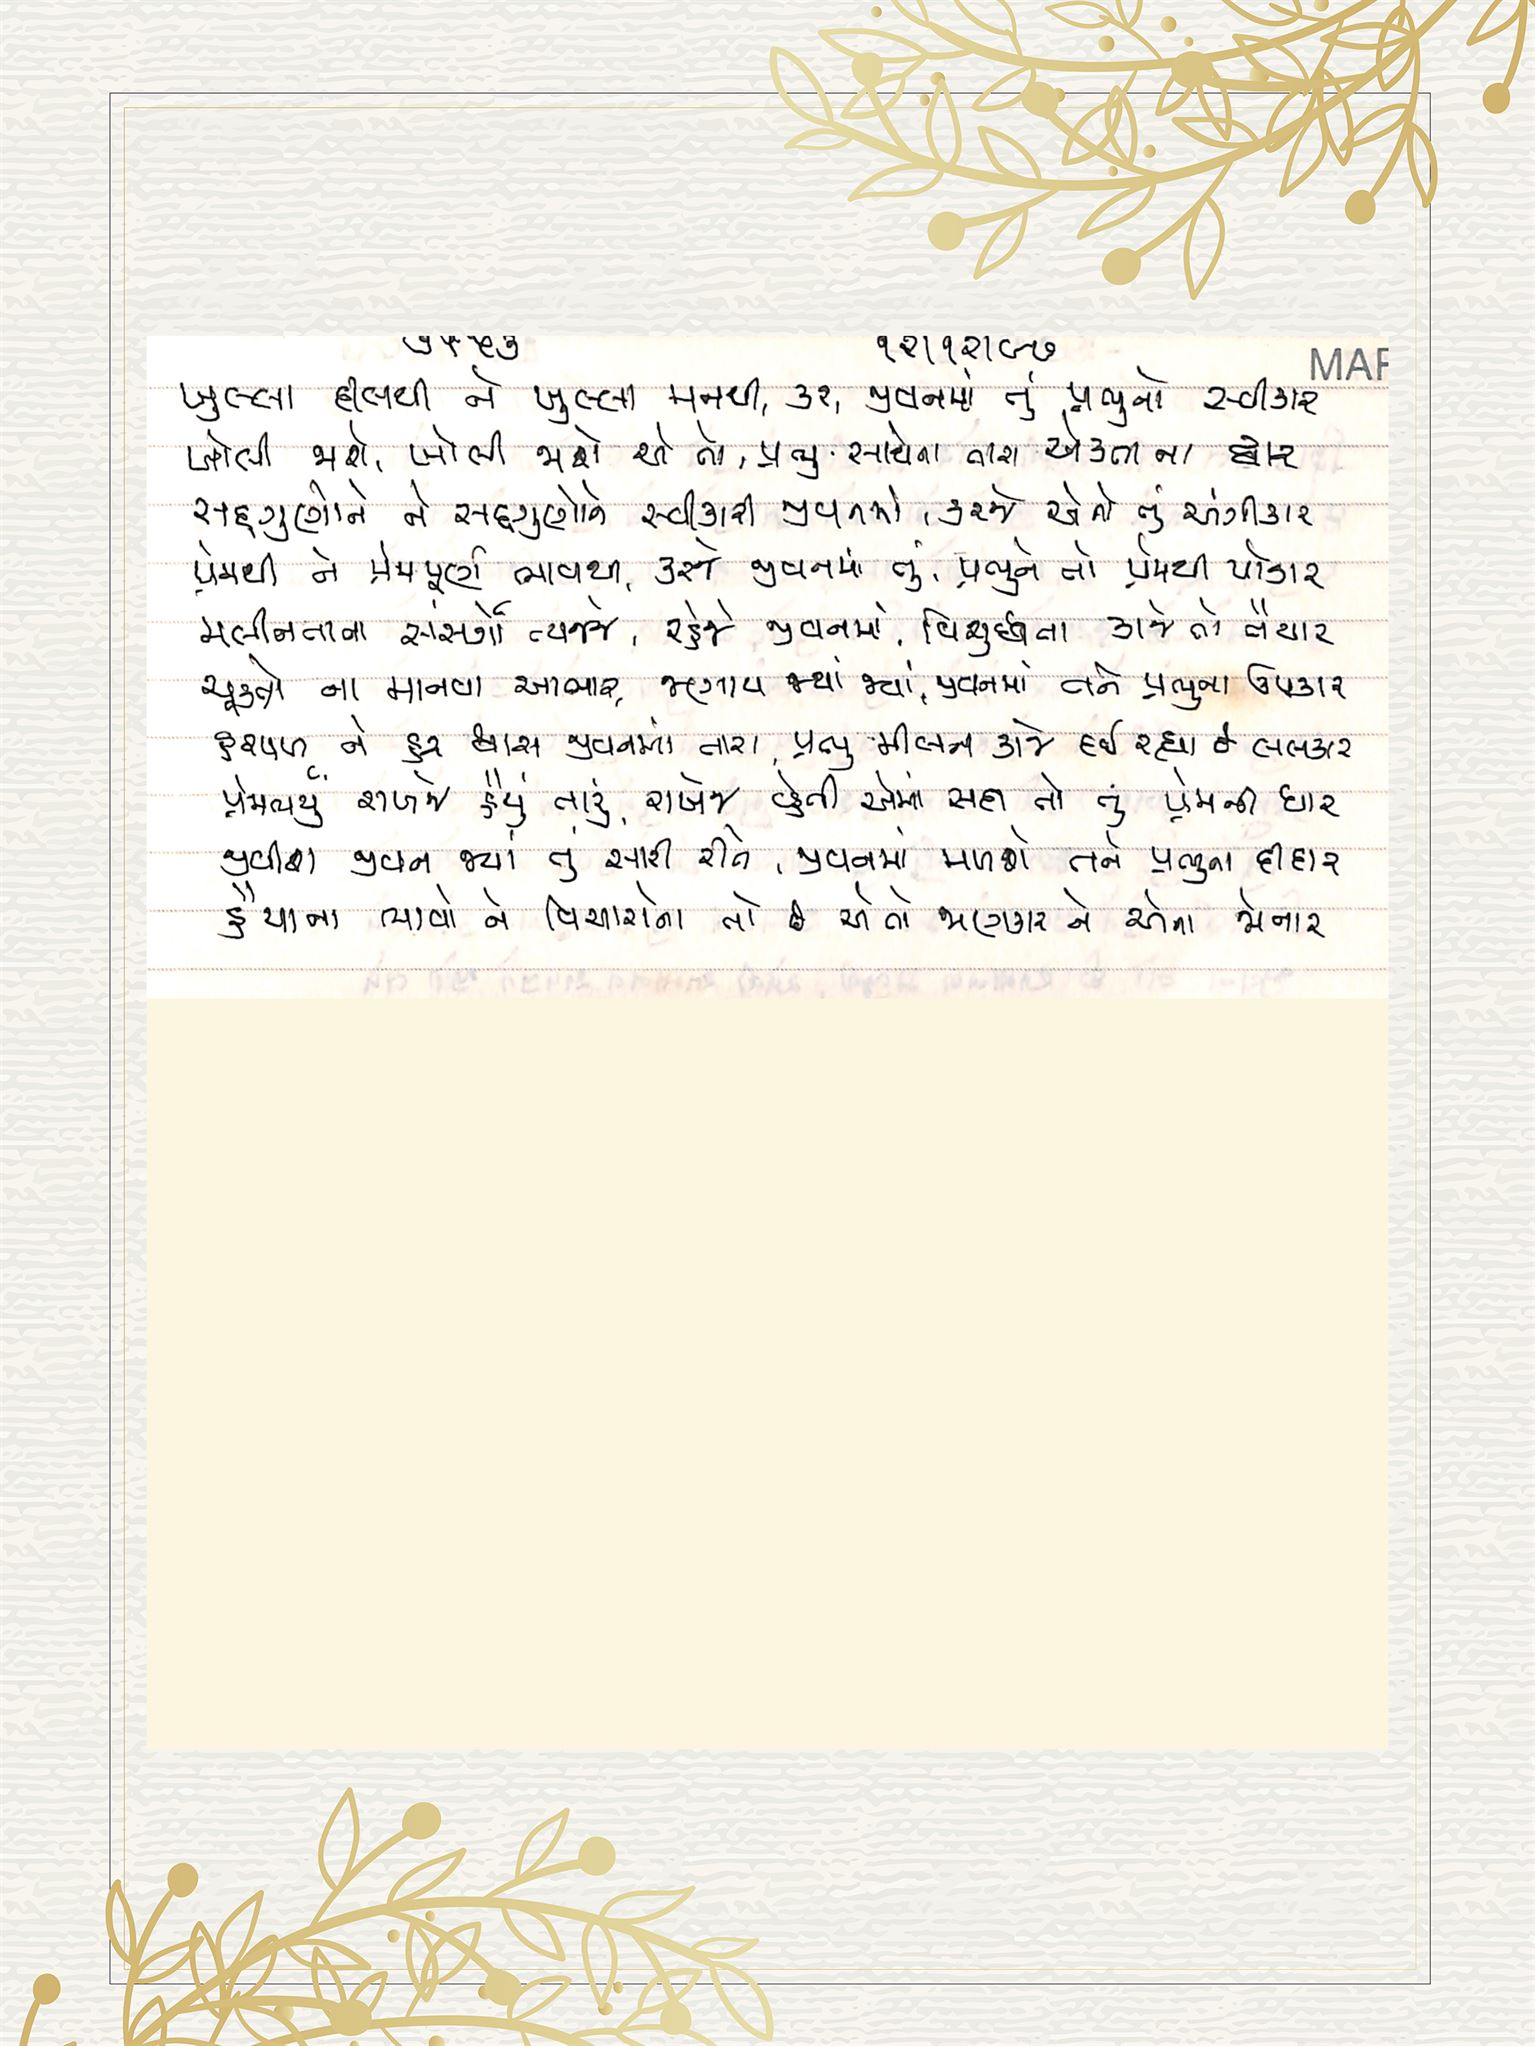 ૧૨।૧૨।૯૭
MAR
ખુલ્લા દીલથી ને ખુલ્લા મનથી, કર, જીવનમાં તું પ્રભુનો સ્વીકાર
ખોલી જાશે, ખોલી જાશે એ તો, પ્રભુ સાથેના તારા એકતાના દ્વાર
સદ્ગુણોને ને સદ્ગુણોને સ્વીકારી જીવનમાં, કરજે એનો તું અંગીકાર
પ્રેમથી ને પ્રેમપૂર્ણ ભાવથી, કરજે જીવનમાં તું, પ્રભુને તો પ્રેમથી પોકાર
મલીનતાના સંસર્ગો ત્યજજે, રહેજે જીવનમાં, વિશુદ્ધતા કાજે તો તૈયાર
ચૂકતો ના માનવા આભાર, જણાય જ્યાં જ્યાં, જીવનમાં તને પ્રભુના ઉપકાર
હરપળ ને હર શ્વાસ જીવનમાં તારા, પ્રભુ મીલન કાજે દઈ રહ્યા છે લલકાર
પ્રેમભર્યું રાખજે હૈયું તારું, રાખજે વહેતી એમાં સદા તો તું પ્રેમની ધાર
જીવીશ જીવન જ્યાં તું સારી રીતે, જીવનમાં મળશે તને પ્રભુના દીદાર
હૈયાના ભાવો ને વિચારોના તો છે એ તો જાણકાર ને એના જોનાર